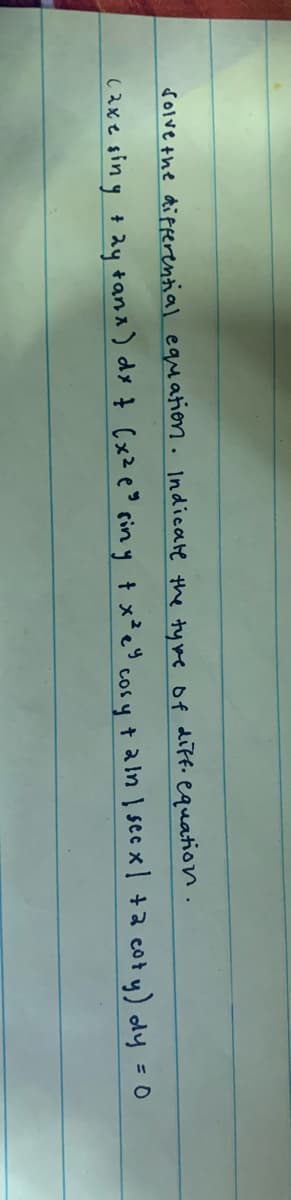 Solve the differential equation. Indicate the type of diff. equation.
(2xe siny + 2y tanx) dx + (x²e^y siny + x²e^y cosy + 2ln|secx| + 2 coty) dy = 0